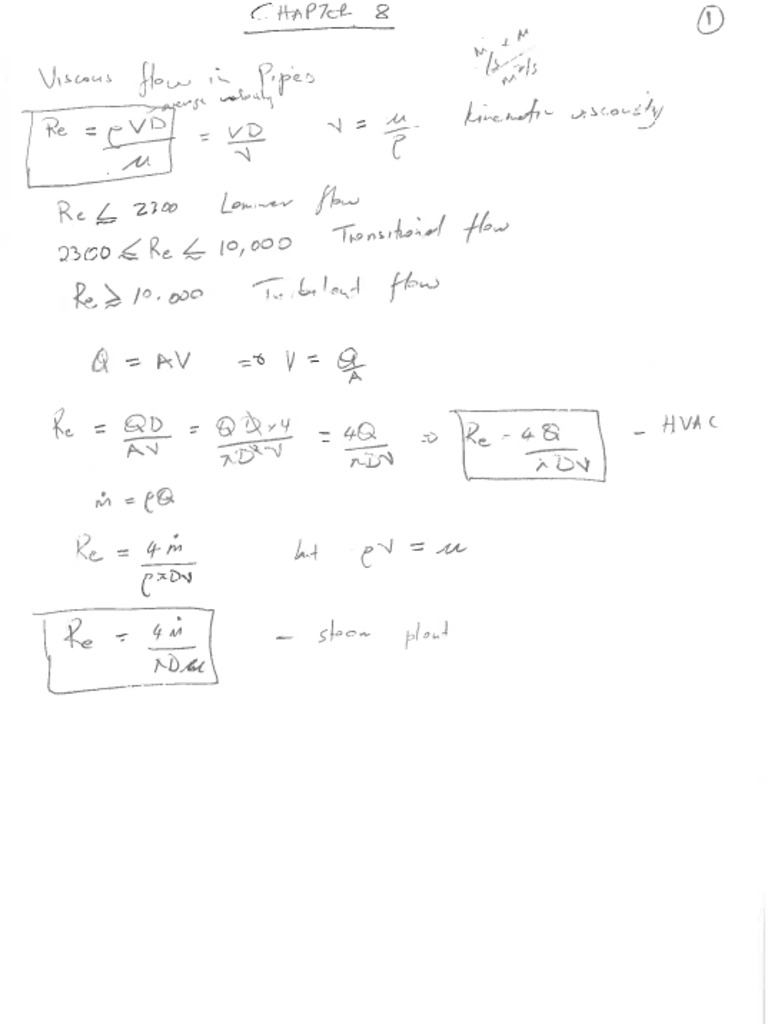 CHAPTER 8
①
Viscous flow in Pipes
average velocity
M/S × M / M²/S
Re = ρVD/μ = VD/ν   ν = μ/ρ   kinematic viscosity
Re ≤ 2300 Laminar flow
2300 ≤ Re ≤ 10,000 Transitional flow
Re ≥ 10.000 Turbulent flow
Q = AV ⇒ V = Q/A
Re = QD/Aν = QD×4/πD²ν = 4Q/πDν ⇒ Re = 4Q/πDν – HVAC
ṁ = ρQ
Re = 4ṁ/ρπDν   but ρν = μ
Re = 4ṁ/πDμ – steam plant